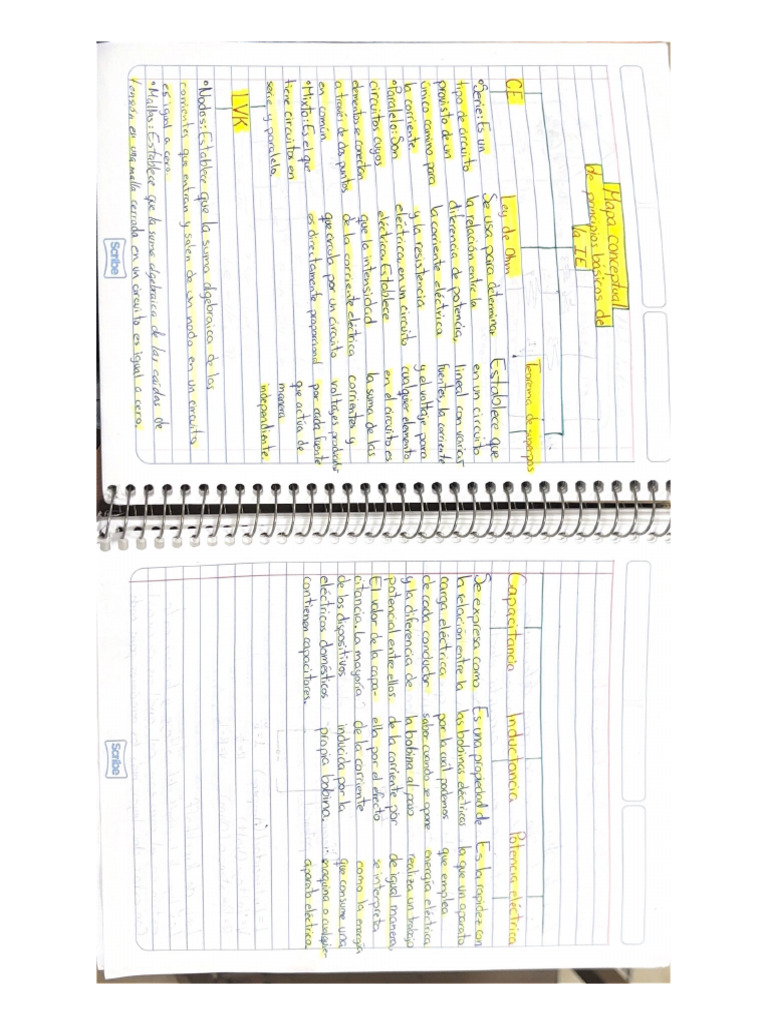 Mapa conceptual
de principios básicos de
la IE
CE
•Serie: Es un
tipo de circuito
provisto de un
único camino para
la corriente
•Paralelo: Son
circuitos cuyos
elementos se conectan
a través de dos puntos
en común
•Mixto: Es el que
tiene circuitos en
serie y paralelo
Ley de Ohm
Se usa para determinar
la relación entre la
diferencia de potencia,
la corriente eléctrica
y la resistencia
eléctrica en un circuito
eléctrico. Establece
que la intensidad
de la corriente eléctrica
que circula por un circuito
es directamente proporcional
Teorema de
Establece que
en un circuito
lineal con varias
fuentes, la corriente
y el voltaje para
cualquier elemento
en el circuito es
la suma de las
corrientes y
voltajes producidos
por cada fuente
que actúa de
manera
independiente.
LVK
•Nodos: Establece que la suma algebraica de las
corrientes que entran y salen de un nodo en un circuito
es igual a cero
•Mallas: Establece que la suma algebraica de las caídas de
tensión en una malla cerrada en un circuito es igual a cero.
Scribe
Capacitancia
Se expresa como
la relación entre la
carga eléctrica
de cada conductor
y la diferencia de
potencial entre ellos.
El valor de la capa-
citancia. la mayoría
de los dispositivos
eléctricos domésticos
contienen capacitores.
Inductancia
Es una propiedad de
las bobinas eléctricas
por la cuál podemos
saber cuando se opone
la bobina al paso
de la corriente por
ella por el efecto
de la corriente
inducida por la
propia bobina.
Potencia eléctrica
Es la rapidez con
la que un aparato
que emplea
energía eléctrica
realiza un trabajo
de igual manera,
se interpreta
como la energía
que consume una
maquina o cualquier
aparato eléctrico.
Scribe